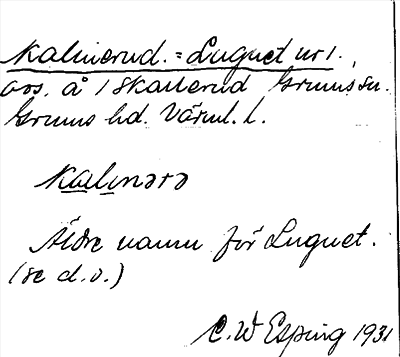 Kalmerud. = Lugnet nr 1.,
avs. å 1 Skarerud Grums sn.
Grums hd. Värml. l.
Kalmərə
Äldre namn för Lugnet.
(se d.o.)
C. W Esping 1931